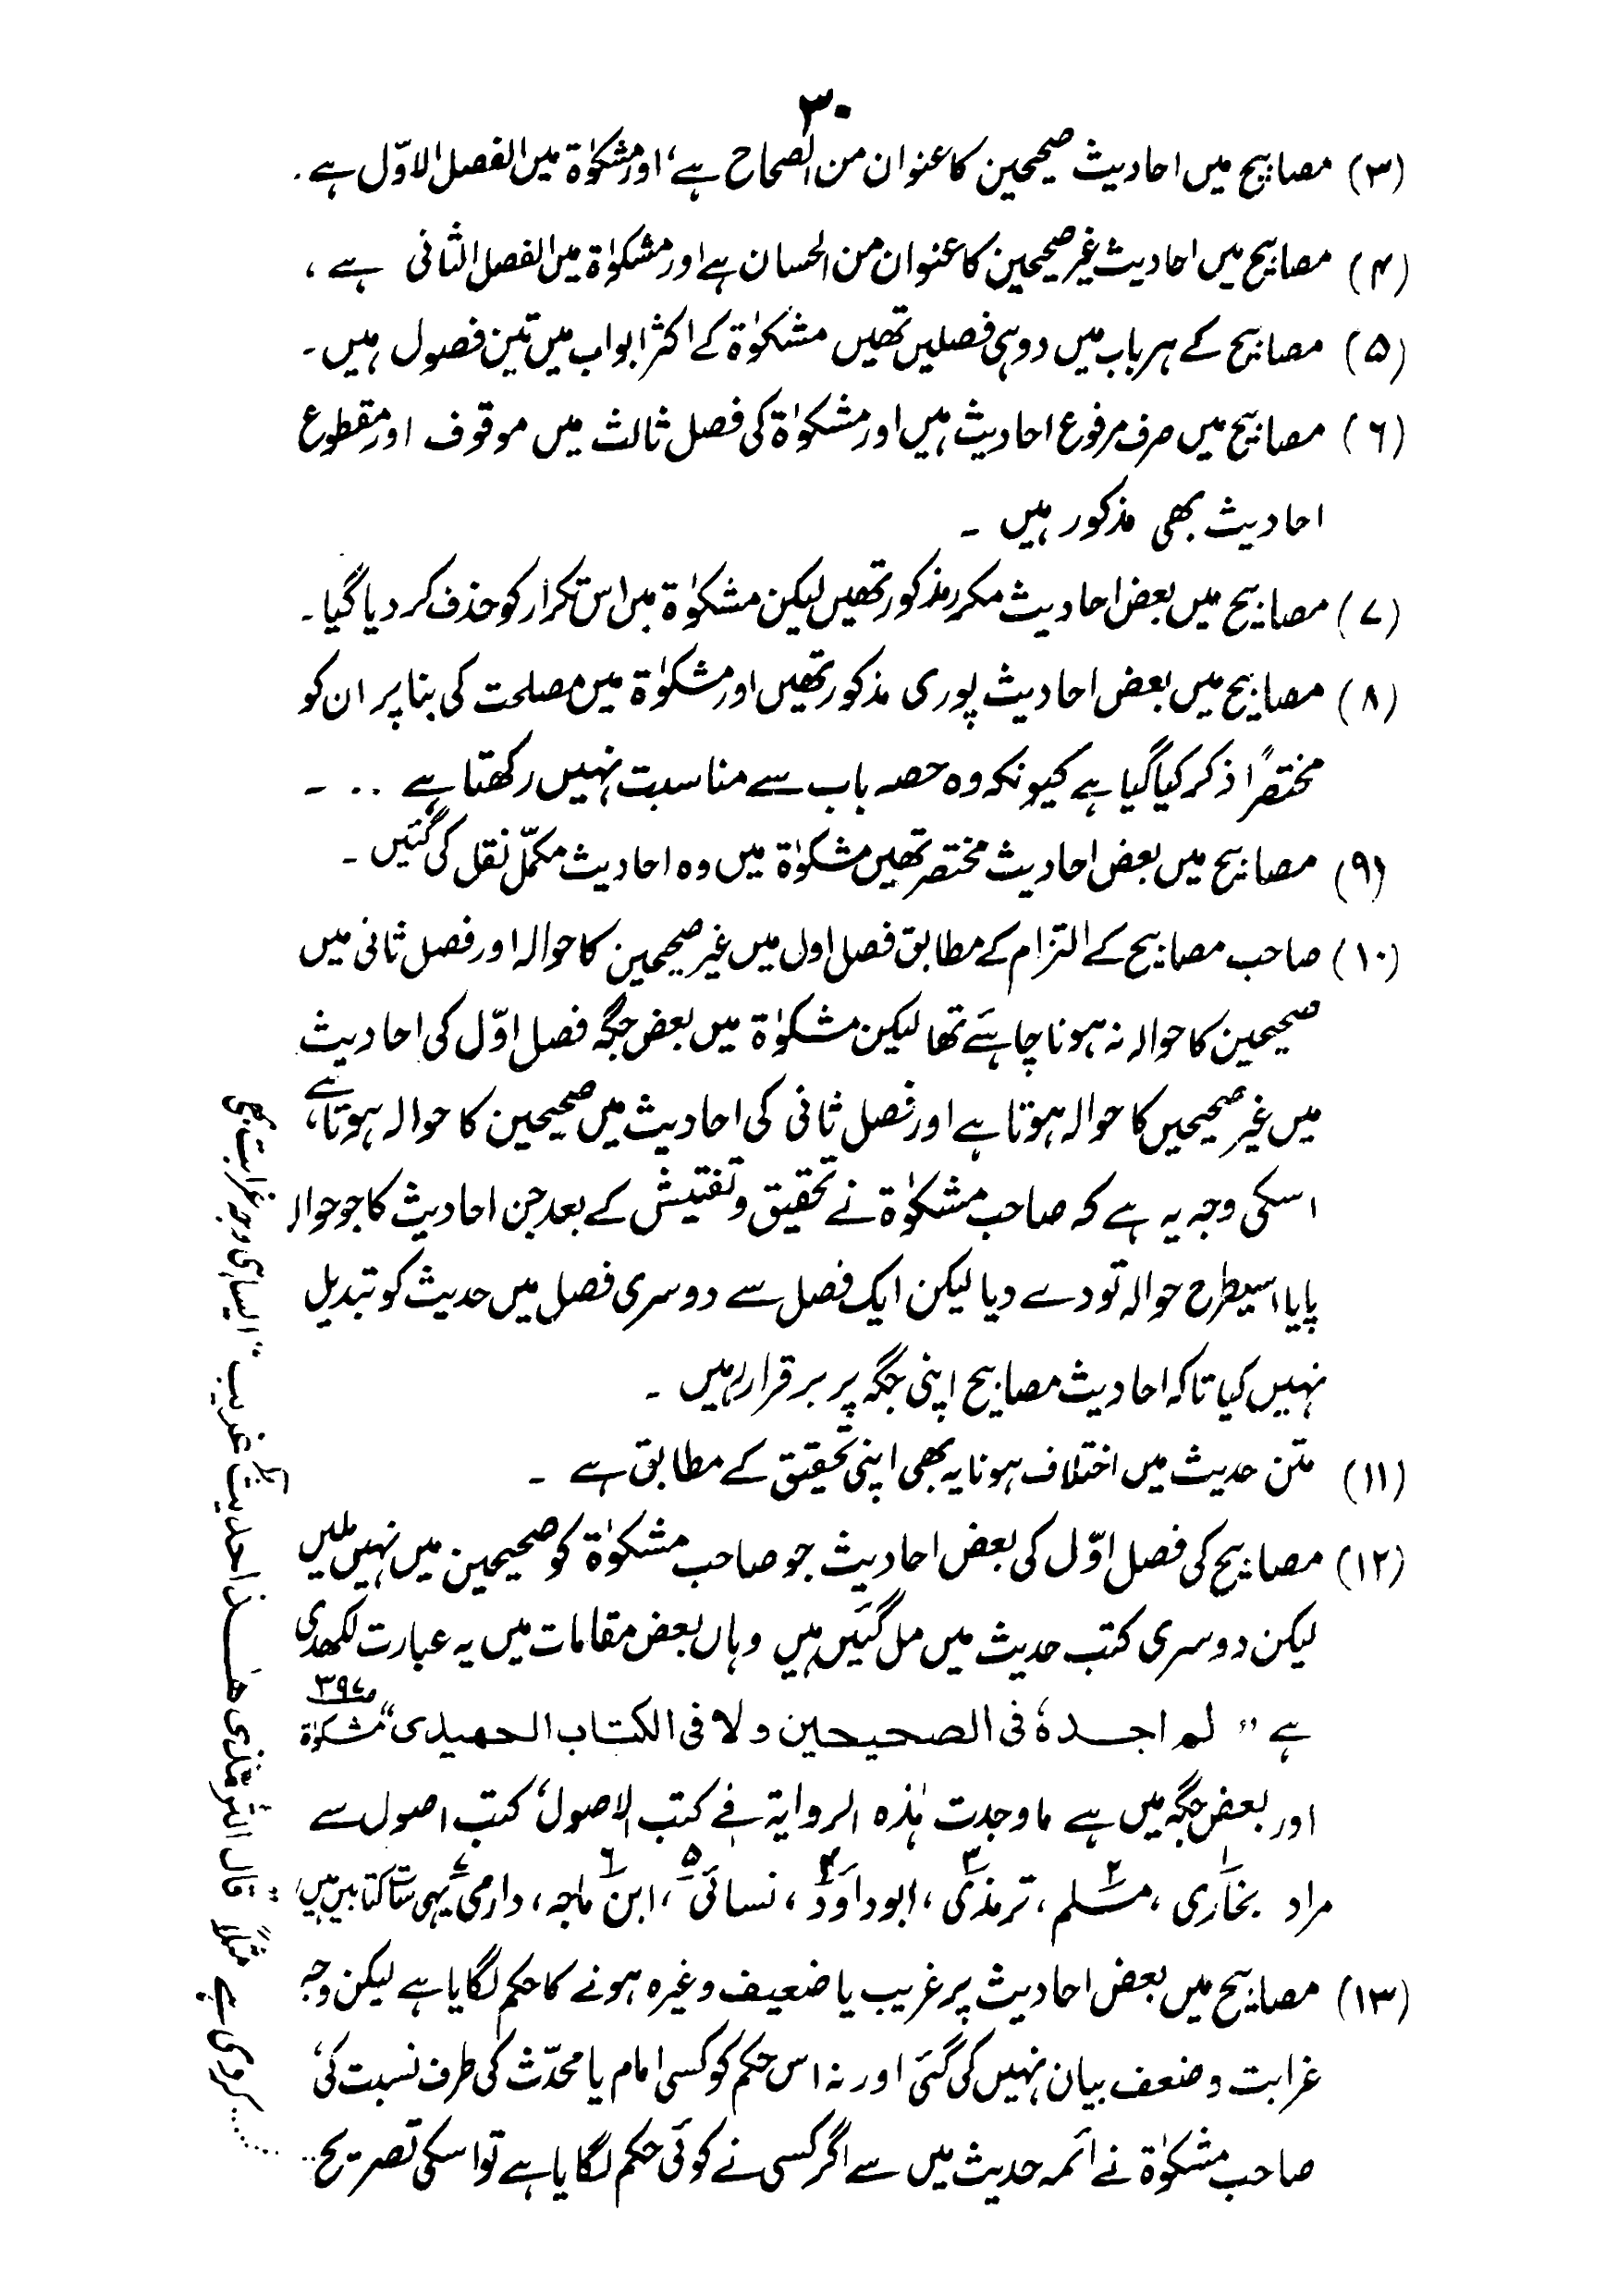 ۳۰
(۳) مصابیح میں احادیث صحیحین کا عنوان من الصحاح ہے، اور مشکوٰۃ میں الفصل الاوّل ہے۔
(۴) مصابیح میں احادیث غیر صحیحین کا عنوان من الحسان ہے اور مشکوٰۃ میں الفصل الثانی ہے،
(۵) مصابیح کے ہر باب میں دو ہی فصلیں تھیں مشکوٰۃ کے اکثر ابواب میں تین فصول ہیں۔
(۶) مصابیح میں صرف مرفوع احادیث ہیں اور مشکوٰۃ کی فصل ثالث میں موقوف اور مقطوع
احادیث بھی مذکور ہیں ۔
(۷) مصابیح میں بعض احادیث مکرر مذکور تھیں لیکن مشکوٰۃ میں اس تکرار کو حذف کر دیا گیا۔
(۸) مصابیح میں بعض احادیث پوری مذکور تھیں اور مشکوٰۃ میں مصلحت کی بنا پر ان کو
مختصراً ذکر کیا گیا ہے کیونکہ وہ حصہ باب سے مناسبت نہیں رکھتا ہے .. ۔
(۹) مصابیح میں بعض احادیث مختصر تھیں مشکوٰۃ میں وہ احادیث مکمّل نقل کی گئیں ۔
(۱۰) صاحب مصابیح کے التزام کے مطابق فصل اول میں غیر صحیحین کا حوالہ اور فصل ثانی میں
صحیحین کا حوالہ نہ ہونا چاہئے تھا لیکن مشکوٰۃ میں بعض جگہ فصل اوّل کی احادیث
میں غیر صحیحین کا حوالہ ہوتا ہے اور فصل ثانی کی احادیث میں صحیحین کا حوالہ ہوتا ہے،
اسکی وجہ یہ ہے کہ صاحب مشکوٰۃ نے تحقیق و تفتیش کے بعد جن احادیث کا جو حوالہ
پایا اسیطرح حوالہ تو دے دیا لیکن ایک فصل سے دوسری فصل میں حدیث کو تبدیل
نہیں کیا تاکہ احادیث مصابیح اپنی جگہ پر برقرار رہیں ۔
(۱۱) متن حدیث میں اختلاف ہونا یہ بھی اپنی تحقیق کے مطابق ہے ۔
(۱۲) مصابیح کی فصل اوّل کی بعض احادیث جو صاحب مشکوٰۃ کو صحیحین میں نہیں ملیں
لیکن دوسری کتب حدیث میں مل گئیں ہیں وہاں بعض مقامات میں یہ عبارت لکھدی
ہے ” لم اجدہٗ فی الصحیحین ولا فی الکتاب الحمیدی“ مشکوٰۃ ص۳۹۷
اور بعض جگہ میں ہے ما وجدت ہٰذہ الروایۃ فی کتب الاصول، کتب اصول سے
مراد بخاری۱، مسلم۲، ترمذی۳، ابوداؤد۴، نسائی۵، ابن ماجہ۶، دارمی۷ یہی سات کتابیں ہیں،
(۱۳) مصابیح میں بعض احادیث پر غریب یا ضعیف وغیرہ ہونے کا حکم لگایا ہے لیکن وجہ
غرابت و ضعف بیان نہیں کی گئی اور نہ اس حکم کو کسی امام یا محدّث کی طرف نسبت کی،
صاحب مشکوٰۃ نے ائمہ حدیث میں سے اگر کسی نے کوئی حکم لگایا ہے تو اسکی تصریح ..
......کردی ہے مثلاً ”قال الترمذی ھٰذا حدیث غریب“ ایسا ہی وجہ غرابت بھی